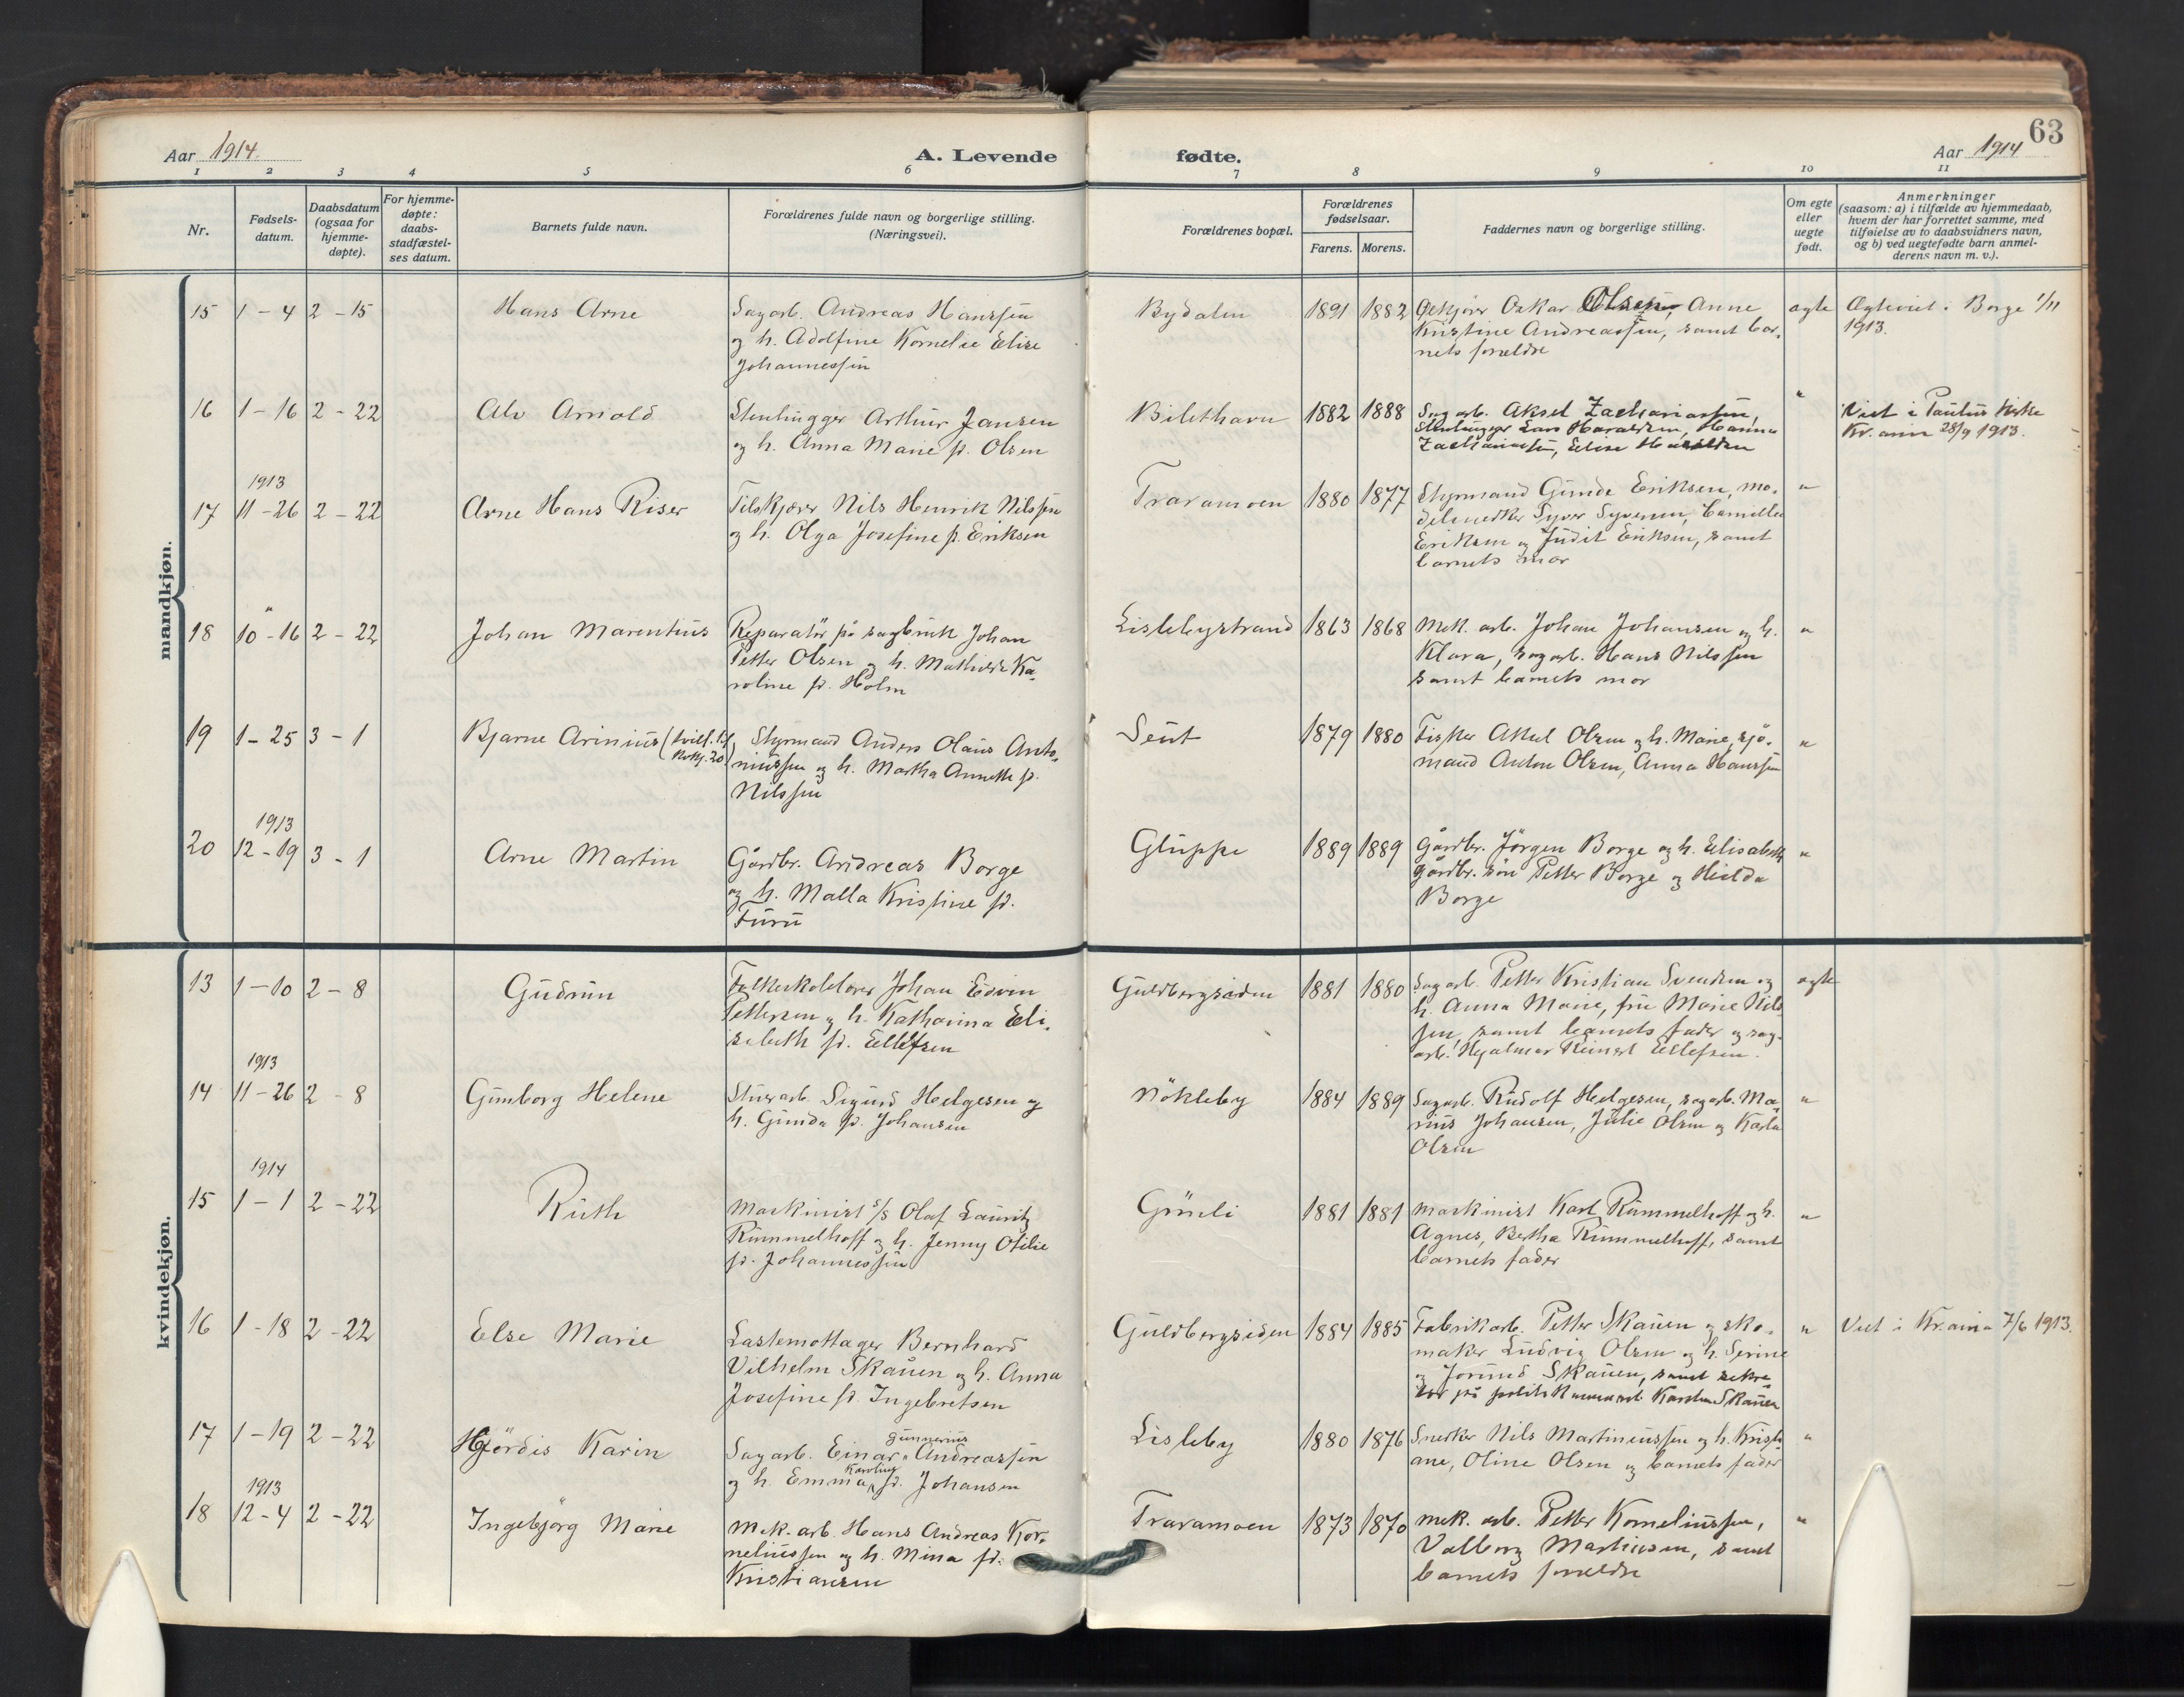 63
Aar 1914
A. Levende
fødte.
Aar 1914
1 2 3 4 5 6 7 8 9 10 11
Nr.
Fødsels-
datum.
Daabsdatum
(ogsaa for
hjemme-
døpte).
For hjemme-
døpte:
daabs-
stadfæstel-
ses datum.
Barnets fulde navn.
Forældrenes fulde navn og borgerlige stilling.
(Næringsvei).
Forældrenes bopæl.
Forældrenes
fødselsaar.
Farens. Morens.
Faddernes navn og borgerlige stilling.
Om egte
eller
uegte
født.
Anmerkninger
(saasom: a) i tilfælde av hjemmedaab,
hvem der har forrettet samme, med
tilføielse av to daabsvidners navn,
og b) ved uegtefødte barn anmel-
derens navn m. v.).
mandkjøn.
15 1-4 2-15 Hans Arne
Sagarb. Andreas Hanssen
og h. Adolfine Kornelie Elise
Johannessen
Bydalen 1891 1882
Oskar Olsen, Anne
Kristine Andreassen, samt bar-
nets forældre
egte
Egteviet i Borge 1/11
1913.
16 1-16 2-22 Alv Arnold
Stenhugger Arthur Jansen
og h. Anna Marie f. Olsen
Bilethavn 1882 1888
Sagarb. Aksel Zachariassen,
Stenhugger Lars Haraldsen, Hanna
Zachariassen, Elise Haraldsen
"
Viet i Paulus kirke
Kr.ania 28/9 1913.
1913
17 11-26 2-22 Arne Hans Riser
Tilskjærer Nils Henrik Nilssen
og h. Olga Josefine f. Eriksen
Traramoen 1880 1877
Styrmand Gunde Eriksen, mo-
delsnedker Syver Syversen, Camilla
Eriksen og Judit Eriksen, samt
barnets mor
"
18 10-16 2-22 Johan Marentius
Reparatør på sagbruk Johan
Petter Olsen og h. Mathilde Ka-
roline f. Holm
Lislebystrand 1863 1868
Mek. arb. Johan Johansen og h.
Klara, sagarb. Hans Nilssen
samt barnets mor
"
19 1-25 3-1 Bjarne Arinius
Styrmand Anders Olaus Anto-
niussen og h. Martha Annette f.
Nilssen
Seut 1879 1880
Fisker Aksel Olsen og h. Marie, sjø-
mand Anton Olsen, Anna Hanssen
"
1913
20 12-19 3-1 Arne Martin
Gårdbr. Andreas Borge
og h. Malla Kristine f.
Furu
Gluppe 1889 1889
Gårdbr. Jörgen Borge og h. Elisabeth
gårdbr. sön Petter Borge og Hilda
Borge
"
kvindekjøn.
13 1-10 2-8 Gudrun
Johan Edvin
Pettersen og h. Katharina Eli-
sabeth f. Ellefsen
Guldbergsiden 1881 1880
Sagarb. Petter Kristian Svendsen og
h. Anna Marie, fru Marie Nils-
sen, samt barnets fader og sag-
arb. Hjalmar Reinert Ellefsen.
egte
1913
14 11-26 2-8 Gunborg Helene
Stuerarb. Sigurd Helgesen og
h. Gunda f. Johansen
Nökleby 1884 1889
Sagarb. Rudolf Helgesen, sagarb. Ma-
rius Johansen, Julie Olsen og Karla
Olsen
"
1914
15 1-1 2-22 Ruth
Maskinist s/s Olaf Lauritz
Rummelhoff og h. Jenny Otilie
f. Johannessen
Grönli 1881 1881
Maskinist Karl Rummelhoff og h.
Agnes, Bertha Rummelhoff, samt
barnets fader
"
16 1-18 2-22 Else Marie
Lastemottager Bernhard
Vilhelm Skauen og h. Anna
Josefine f. Ingebretsen
Guldbergsiden 1884 1885
Fabrikarb. Petter Skauen og sko-
maker Ludvig Olsen og h. Serine
og Jorund Skauen, samt sekre-
tær på Karsten Skauen
"
Viet i Kr.ania 7/6 1913.
17 1-19 2-22 Hjördis Karin
Sagarb. Einar Gunnerius Andreassen
og h. Emma Karoline f. Johansen
Lisleby 1880 1876
Snerker Nils Martiniussen og h. Kristi-
ane, Oline Olsen og barnets fader
"
1913
18 12-4 2-22 Ingebjörg Marie
Mek. arb. Hans Andreas Kor-
neliussen og h. Mina f.
Kristiansen
Traramoen 1873 1870
mek. arb. Petter Korneliussen,
Valborg Martinsen, samt
barnets forældre
"